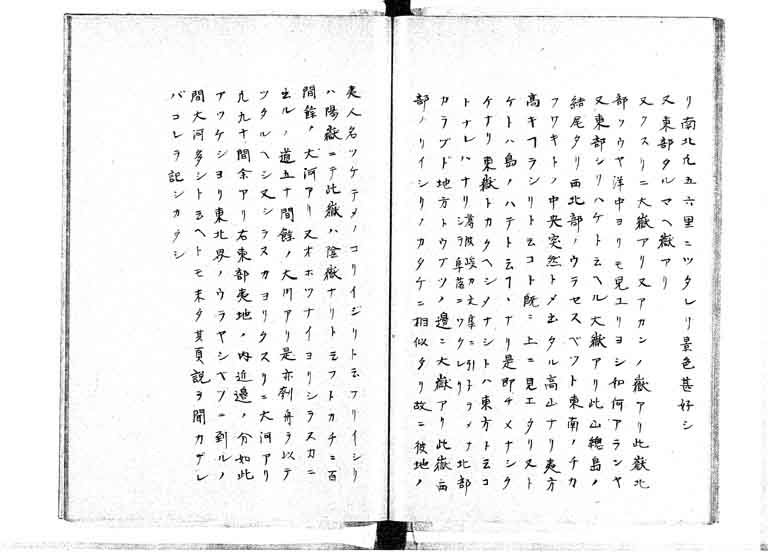 リ南北凡五六里ニツタレリ景色甚好シ
又東部タルマヘ嶽アリ
又クスリニ大嶽アリ又アカンノ嶽アリ此嶽北
部ソウヤ洋中ヨリモ見ユリヨシ如何アランヤ
又東部シリハケト云ヘル大嶽アリ此山總島ノ
結尾タリ西北部ノウラセスベツト東南ノチカ
フワキトノ中央突然トメ出タル高山ナリ夷方
高キフラシリト云コト既ニ上ニ見エタリスト
ケトハ島ノハテト云フヿナリ是即チメナシタ
ケナリ東嶽トカタヘシメナシトハ東方ト云コ
トナレハナリ
北部
カラブト地方トウブツノ邊ニ大嶽アリ此嶽西
部ノリイシリノカタケニ相似タリ故ニ彼地ノ
夷人名ツケテメノコリイジリト云フリイシリ
ハ陽嶽ニテ此嶽ハ陰嶽ナリト云フトカチニ百
間餘ノ大河アリ又オホツナイヨリシラスカニ
至ルノ道五十間餘ノ大川アリ是亦刳舟ヲ以テ
ツタルヘシ又シラスカヨリクスリニ大河アリ
九九十間余アリ右東部夷地ノ内近邊ノ分如此
アツケシヨリ東北界ノウラヤシベツニ到ルノ
間大河多シト云ヘトモ未タ其頁説ヲ聞カザレ
バコレヲ記シカタシ